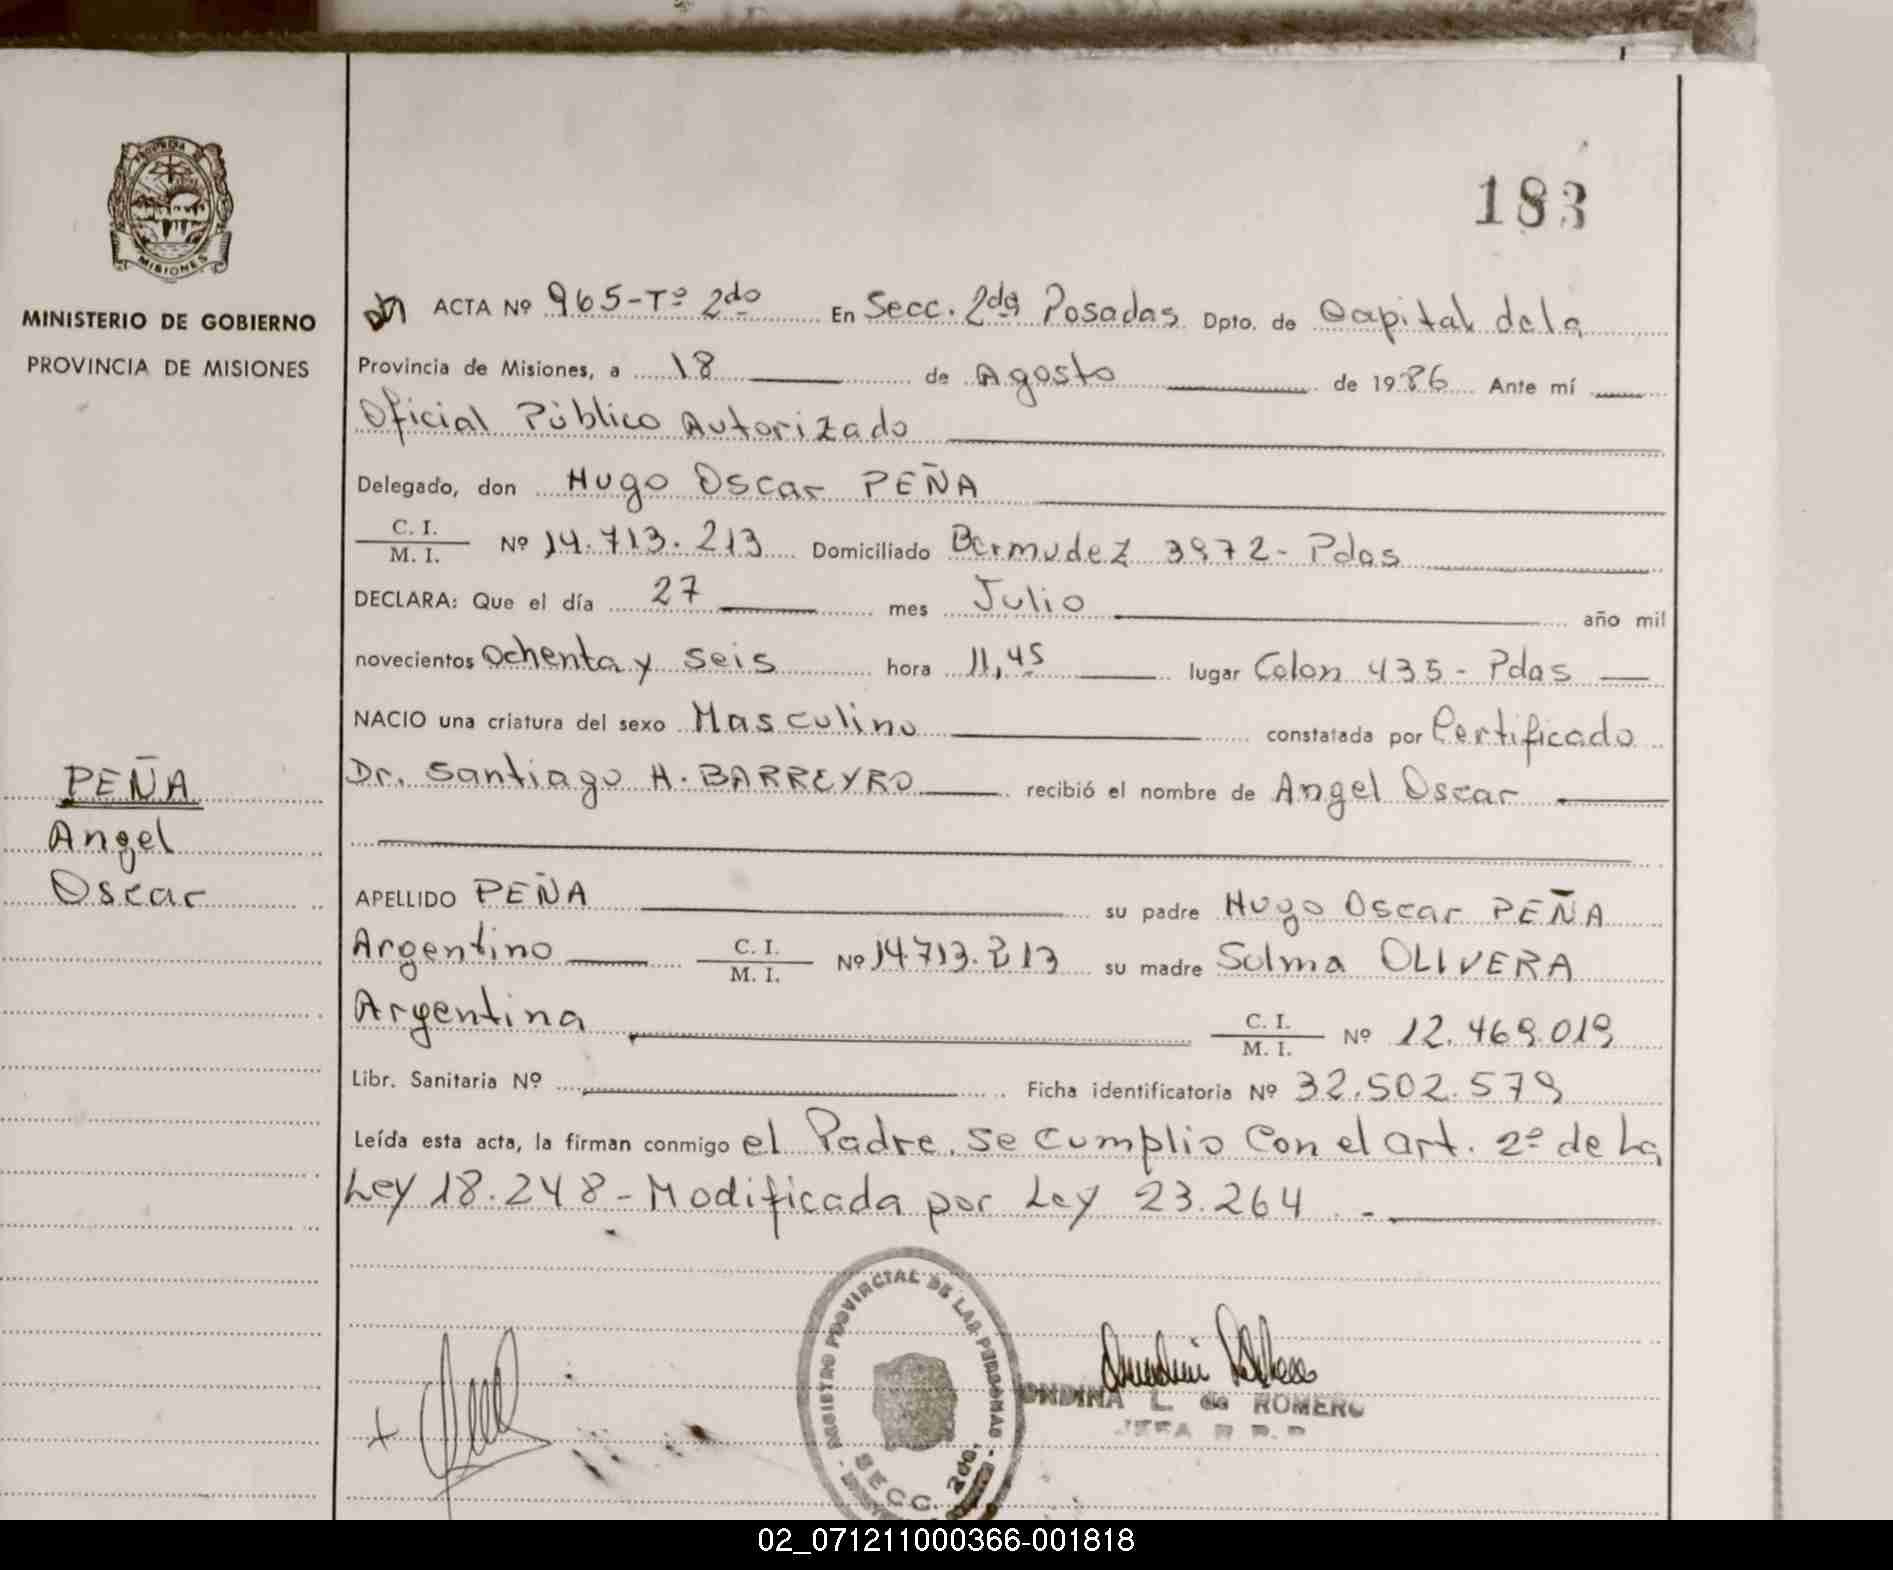 183
PROVINCIA DE
MISIONES
MINISTERIO DE GOBIERNO
PROVINCIA DE MISIONES
PEÑA
Angel
Oscar
ACTA Nº 965-Tº 2do En Secc. 2da Posadas Dpto. de Capital de la
Provincia de Misiones, a 18 de Agosto de 1986 Ante mí
Oficial Público Autorizado
Delegado, don Hugo Oscar PEÑA
C. I.
M. I. Nº 14.713.213 Domiciliado Bermudez 3972- Pdas
DECLARA: Que el día 27 mes Julio año mil
novecientos Ochenta y seis hora 11,45 lugar Colon 435- Pdas
NACIO una criatura del sexo Masculino constatada por Certificado
Dr. Santiago H. BARREYRO recibió el nombre de Angel Oscar
APELLIDO PEÑA su padre Hugo Oscar PEÑA
Argentino C. I.
M. I. Nº 14713.213 su madre Sulma OLIVERA
Argentina C. I.
M. I. Nº 12.469.019
Libr. Sanitaria Nº Ficha identificatoria Nº 32.502.579
Leída esta acta, la firman conmigo el Padre. Se cumplio Con el art. 2º de La
Ley 18.248 - Modificada por Ley 23.264 . -
REGISTRO PROVINCIAL DE LAS PERSONAS
SECC. 2da.
ONDINA L. de ROMERO
JEFA R.P.P
02_071211000366-001818